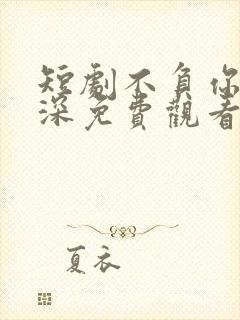 短劇不負你
深免費觀看
夏衣